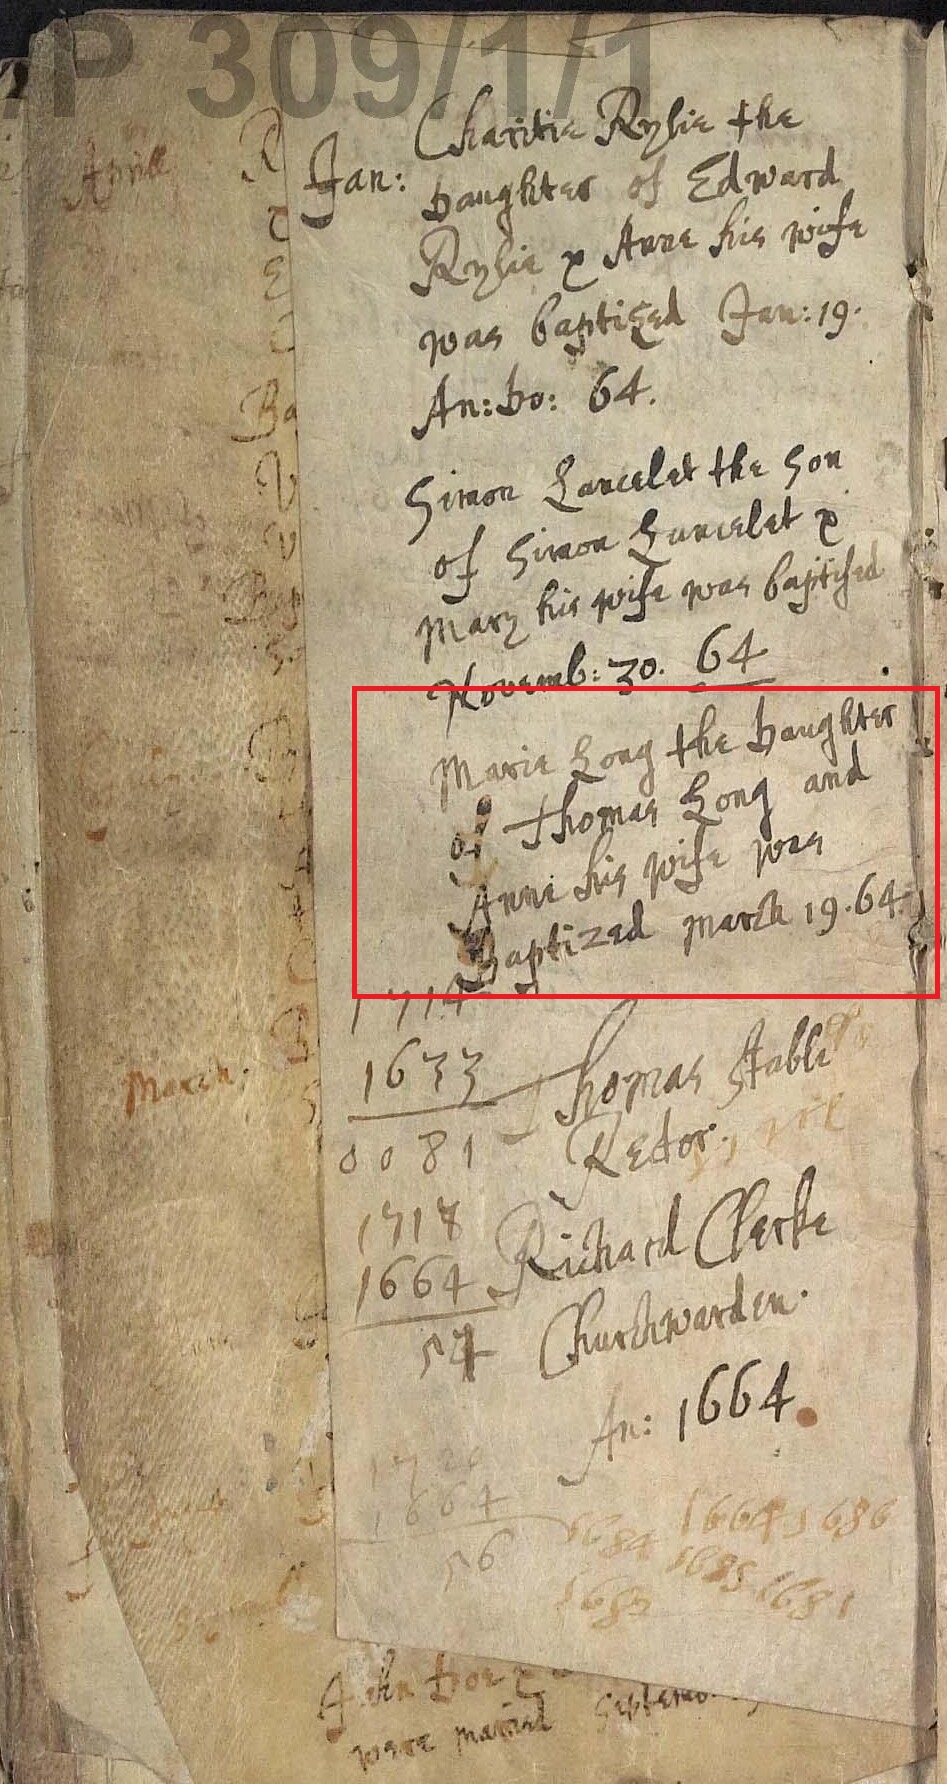 P 309/1/1
Aprill
Jan: Charitie Rylie the
Daughter of Edward
Rylie & Anne his wife
was baptized Jan: 19.
An: Do: 64.
Simon Lancelet the Son
of Simon Lancelet &
Mary his wife was baptised
Novemb: 30. 64
Marie Long the Daughter
of Thomas Long and
Anne his wife was
Baptized March 19. 64.
1714
1633
0081
Thomas Stable
Rector.
March.
1718
1664
54
Richard Clerke
Churchwarden.
An: 1664
1720
1664
56
1684 1664 1686
1685 1681
John Doe &
were maried Septemb.